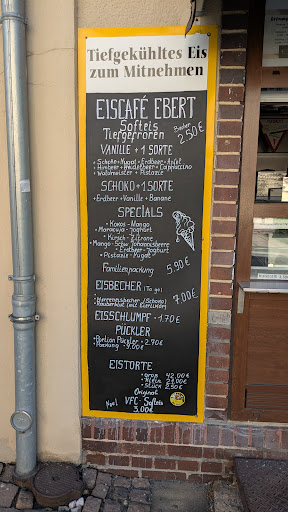 Tiefgekühltes Eis
zum Mitnehmen
EISCAFÉ EBERT
Softeis
Tiefgefroren
Becher 2.50€
VANILLE + 1 SORTE
+ Schoko + Nugat + Erdbeer + Apfel
+ Himbeer + Heidelbeer + Cappuccino
+ Waldmeister + Pistazie
SCHOKO + 1 SORTE
+ Erdbeer + Vanille + Banane
SPECIALS
Kokos - Mango
Maracuja - Joghurt
Kirsch - Zitrone
Mango - Schw. Johannisbeere
Erdbeer - Joghurt
Pistazie - Nugat
Familienpackung 5.90€
EISBECHER (To go)
7.00€
+ Herrenbecher (Schoko)
+ Räuberhut (mit Eierlikör)
EISSCHLUMPF - 1.70€
PÜCKLER
+ Portion Pückler - 2.70€
Packung - 9.00€
EISTORTE
+ groß 42.00€
+ klein
+ Stück 2.90€
Original
VFC-Softeis
3.00€